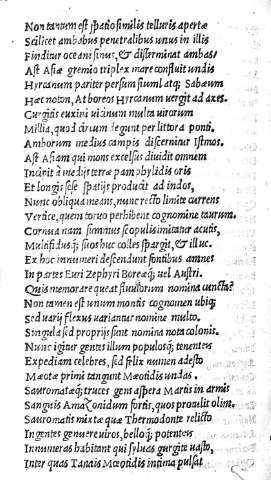 Non tantum est spatio similis telluris apertæ
Scilicet ambabus penetralibus unus in illis
Finditur oceani sinus, & disterminat ambas
Ast Asiæ gremio triplex mare confluit undis
Hyrcanum pariter persum simul atq; Sabæum
Hæc noton, At boreos Hyrcanum uergit ad axes.
Gurgitis euxini uicinum multa uirorum
Millia, quod circum degunt per littora ponti.
Amborum medius campis discernitur isthmos.
Ast Asiam qui mons excelsus diuidit omnem
Incipit à medijs terræ pamphylidis oris
Et longis sese spatijs producit ad indos,
Nunc obliqua means, nunc recto limite currens
Vertice, quem toruo perhibent cognomine taurum.
Cornua nam summus scopulis imitatur acutis,
Multifidusq; suos huc colles spargit, & illuc.
Ex hoc innumeri descendunt fontibus amnes
In partes Euri Zephyri Boreæq; uel Austri.
Quis memorare queat fluuiorum nomina cuncta?
Non tamen est unum montis cognomen ubiq;
Sed uarij flexus uariantur nomine multo.
Singula sed proprijs sunt nomina nota colonis.
Nunc igitur gentes illum populosq; tenentes
Expediam celebres, sed felix numen adesto
Mæotæ primi tangunt Mæotidis undas.
Sauromatæq; truces gens aspera Martis in armis
Sanguis Amazonidum fortis, quos protulit olim.
Sauromatis mixtæ quæ Thermodonte relicto
Ingentes genuere uiros, belloq; potentes
Innumeras habitant qui syluas gurgite uasto,
Inter quas Tanais Mæotidis intima pulsat